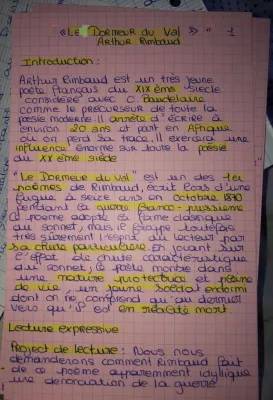 « Le Dormeur du Val » 1
Arthur Rimbaud
Introduction :
Arthur Rimbaud est un très jeune
poète français du XIXème siècle
considéré avec C. Baudelaire
comme le précurseur de toute la
poésie moderne. Il arrête d'écrire à
environ 20 ans et part en Afrique
où on perd sa trace, il exercera une
influence énorme sur toute la poésie
du XXème siècle
"Le Dormeur du Val" est un des 1er
poèmes de Rimbaud, écrit lors d'une
fugue à seize ans en octobre 1870
pendant la guerre franco-prussienne
Ce poème adopte la forme classique
du sonnet, mais il frappe toutefois
très sûrement l'esprit du lecteur par
sa chute particulière. En jouant sur
l'effet de chute caractéristique
du sonnet, le poète montre dans
une nature protectrice et pleine
de vie, un jeune soldat endormi
dont on ne comprend qu'au dernier
vers qu'il est en réalité mort.
Lecture expressive
Project de lecture : Nous nous
demanderons comment Rimbaud fait
de ce poème apparemment idyllique
une dénonciation de la guerre